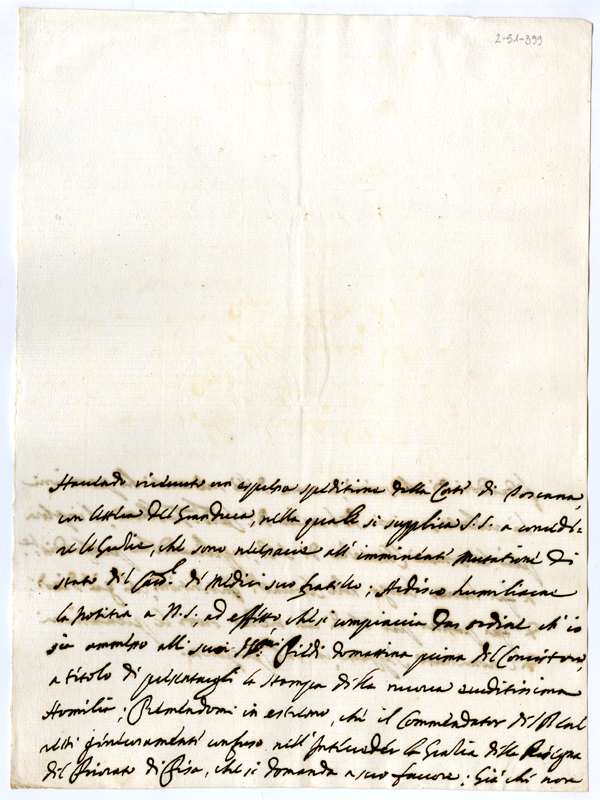 2-51-399
Havendo ricevuto un espressa speditione della Corte di Toscana,
con lettera del Granduca, nella quale si supplica S. S. a concedi=
re le Gratie, che sono necessarie all' imminente mutatione di
stato del Card.l de Medici suo fratello; Ardisco humiliarne
la notitia a N. S., ad effetto che si compiaccia dar ordine ch' io
sia ammesso alli suoi SS.mi Piedi domattina prima del Concistoro,
a titolo di presentargli la stampa della nuova eruditissima
Homilia; Premendomi in estremo, che il Commendator del Bene
resti sinceramente confuso, nell' intender la Gratia della Rassegna
del Priorato di Pisa, che si domanda a suo favore; Già che non